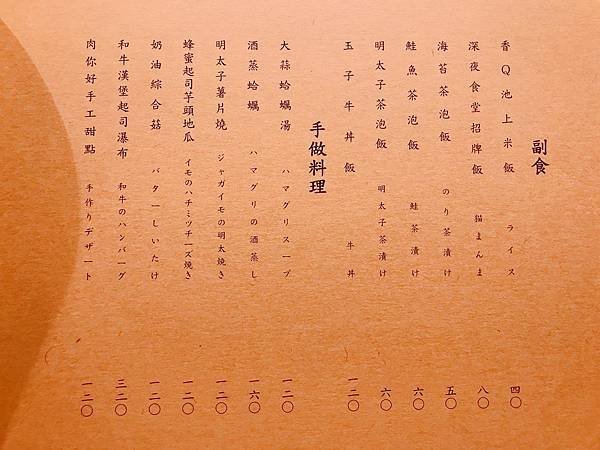 副食
香Q池上米飯 ライス 四〇
深夜食堂招牌飯 猫まんま 八〇
海苔茶泡飯 のり茶漬け 五〇
鮭魚茶泡飯 鮭茶漬け 六〇
明太子茶泡飯 明太子茶漬け 六〇
玉子牛丼飯 牛丼 一二〇
手做料理
大蒜蛤蠣湯 ハマグリスープ 一二〇
酒蒸蛤蠣 ハマグリの酒蒸し 一六〇
明太子薯片燒 ジャガイモの明太焼き 一二〇
蜂蜜起司芋頭地瓜 イモのハチミツチーズ焼き 一二〇
奶油綜合菇 バターしいたけ 一二〇
和牛漢堡起司瀑布 和牛のハンバーグ 三二〇
肉你好手工甜點 手作りデザート 一二〇